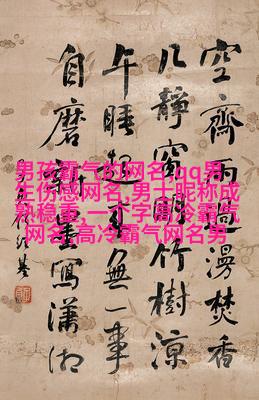 空齋雨過漫焚香
几靜窗明竹樹涼
午睡起來無一事
自磨墨寫瀟湘
男孩霸气的网名,qq男
生伤感网名,男士昵称成
熟稳重,一个字高冷霸气
网名,高冷霸气网名男